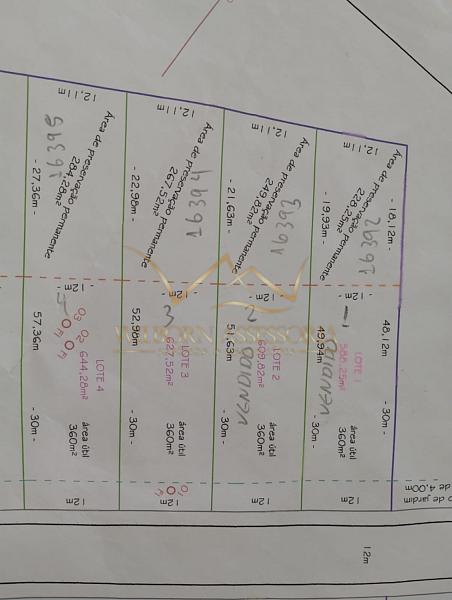 12,11m
12,11m
12,11m
12,11m
Área de preservação permanente
284,28m²
- 27,36m -
Área de preservação permanente
267,52m²
- 22,98m -
Área de preservação permanente
249,82m²
- 21,63m -
Área de preservação permanente
228,25m²
- 19,93m -
- 18,12m -
12m
12m
12m
12m
WELBORN ASSESSORIA
57,36m
LOTE 4
644,28m²
52,98m
3
LOTE 3
627,52m²
51,63m
2
LOTE 2
609,82m²
VENDIDO
49,94m
1
LOTE 1
588,25m²
VENDIDO
48,12m
- 30m -
área útil
360m²
- 30m -
área útil
360m²
- 30m -
área útil
360m²
- 30m -
área útil
360m²
- 30m -
12m
12m
12m
12m
de jardim
de 4,00m
12m